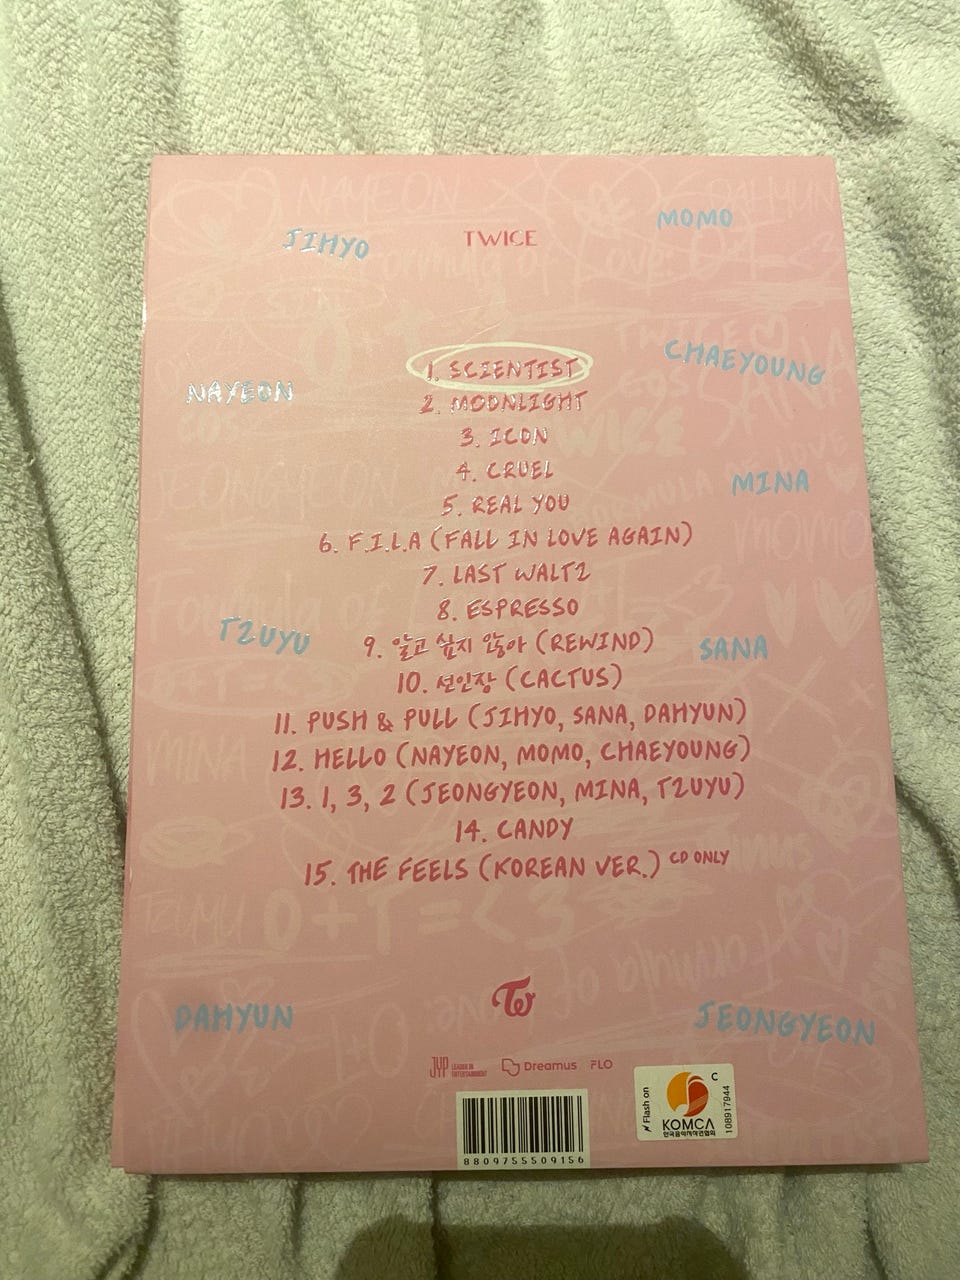 NAYEON
DAHYUN
MOMO
JIHYO
TWICE
Formula of Love: O+T=<3
CHAEYOUNG
1. SCIENTIST
NAYEON
2. MOONLIGHT
3. ICON
4. CRUEL
MINA
5. REAL YOU
MOMO
6. F.I.L.A (FALL IN LOVE AGAIN)
7. LAST WALTZ
8. ESPRESSO
TZUYU
9. 알고 싶지 않아 (REWIND)
SANA
10. 선인장 (CACTUS)
11. PUSH & PULL (JIHYO, SANA, DAHYUN)
MINA
12. HELLO (NAYEON, MOMO, CHAEYOUNG)
13. 1, 3, 2 (JEONGYEON, MINA, TZUYU)
14. CANDY
15. THE FEELS (KOREAN VER.) CD ONLY
O+T=<3
DAHYUN
JEONGYEON
JYP LEADER IN ENTERTAINMENT
Dreamus
FLO
Flash on
KOMCA
한국음악저작권협회
C
108917944
8809755509156